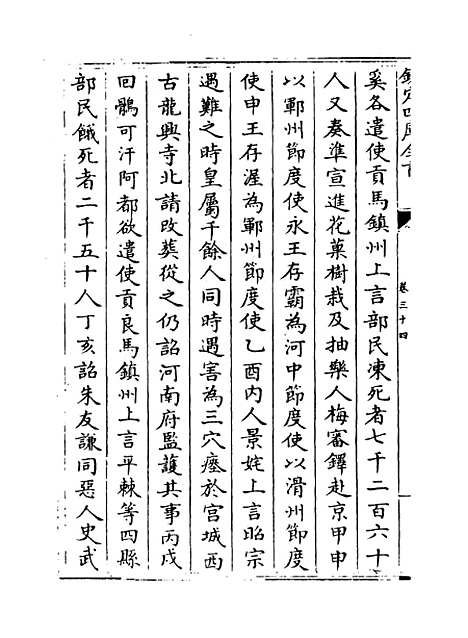 欽定四庫全書
卷三十四
奚各遣使貢馬鎮州上言部民凍死者七千二百六十
人又奏準宣進花菓樹栽及抽樂人梅審鐸赴京甲申
以鄆州節度使永王存霸為河中節度使以滑州節度
使申王存渥為鄆州節度使乙酉内人景姹上言昭宗
遇難之時皇屬千餘人同時遇害為三穴瘞於宮城西
古龍興寺北請改葬從之仍詔河南府監護其事丙戌
回鶻可汗阿都欲遣使貢良馬鎮州上言平棘等四縣
部民餓死者二千五十人丁亥詔朱友謙同惡人史武